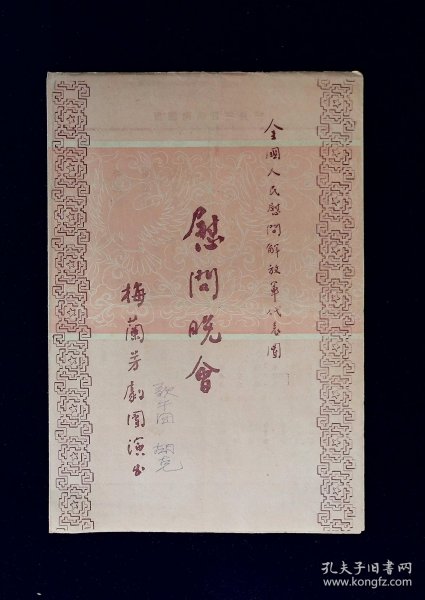 全國人民慰問解放軍代表團
慰問晚會
梅蘭芳劇團演出
胡克
孔夫子旧书网
www.kongfz.com